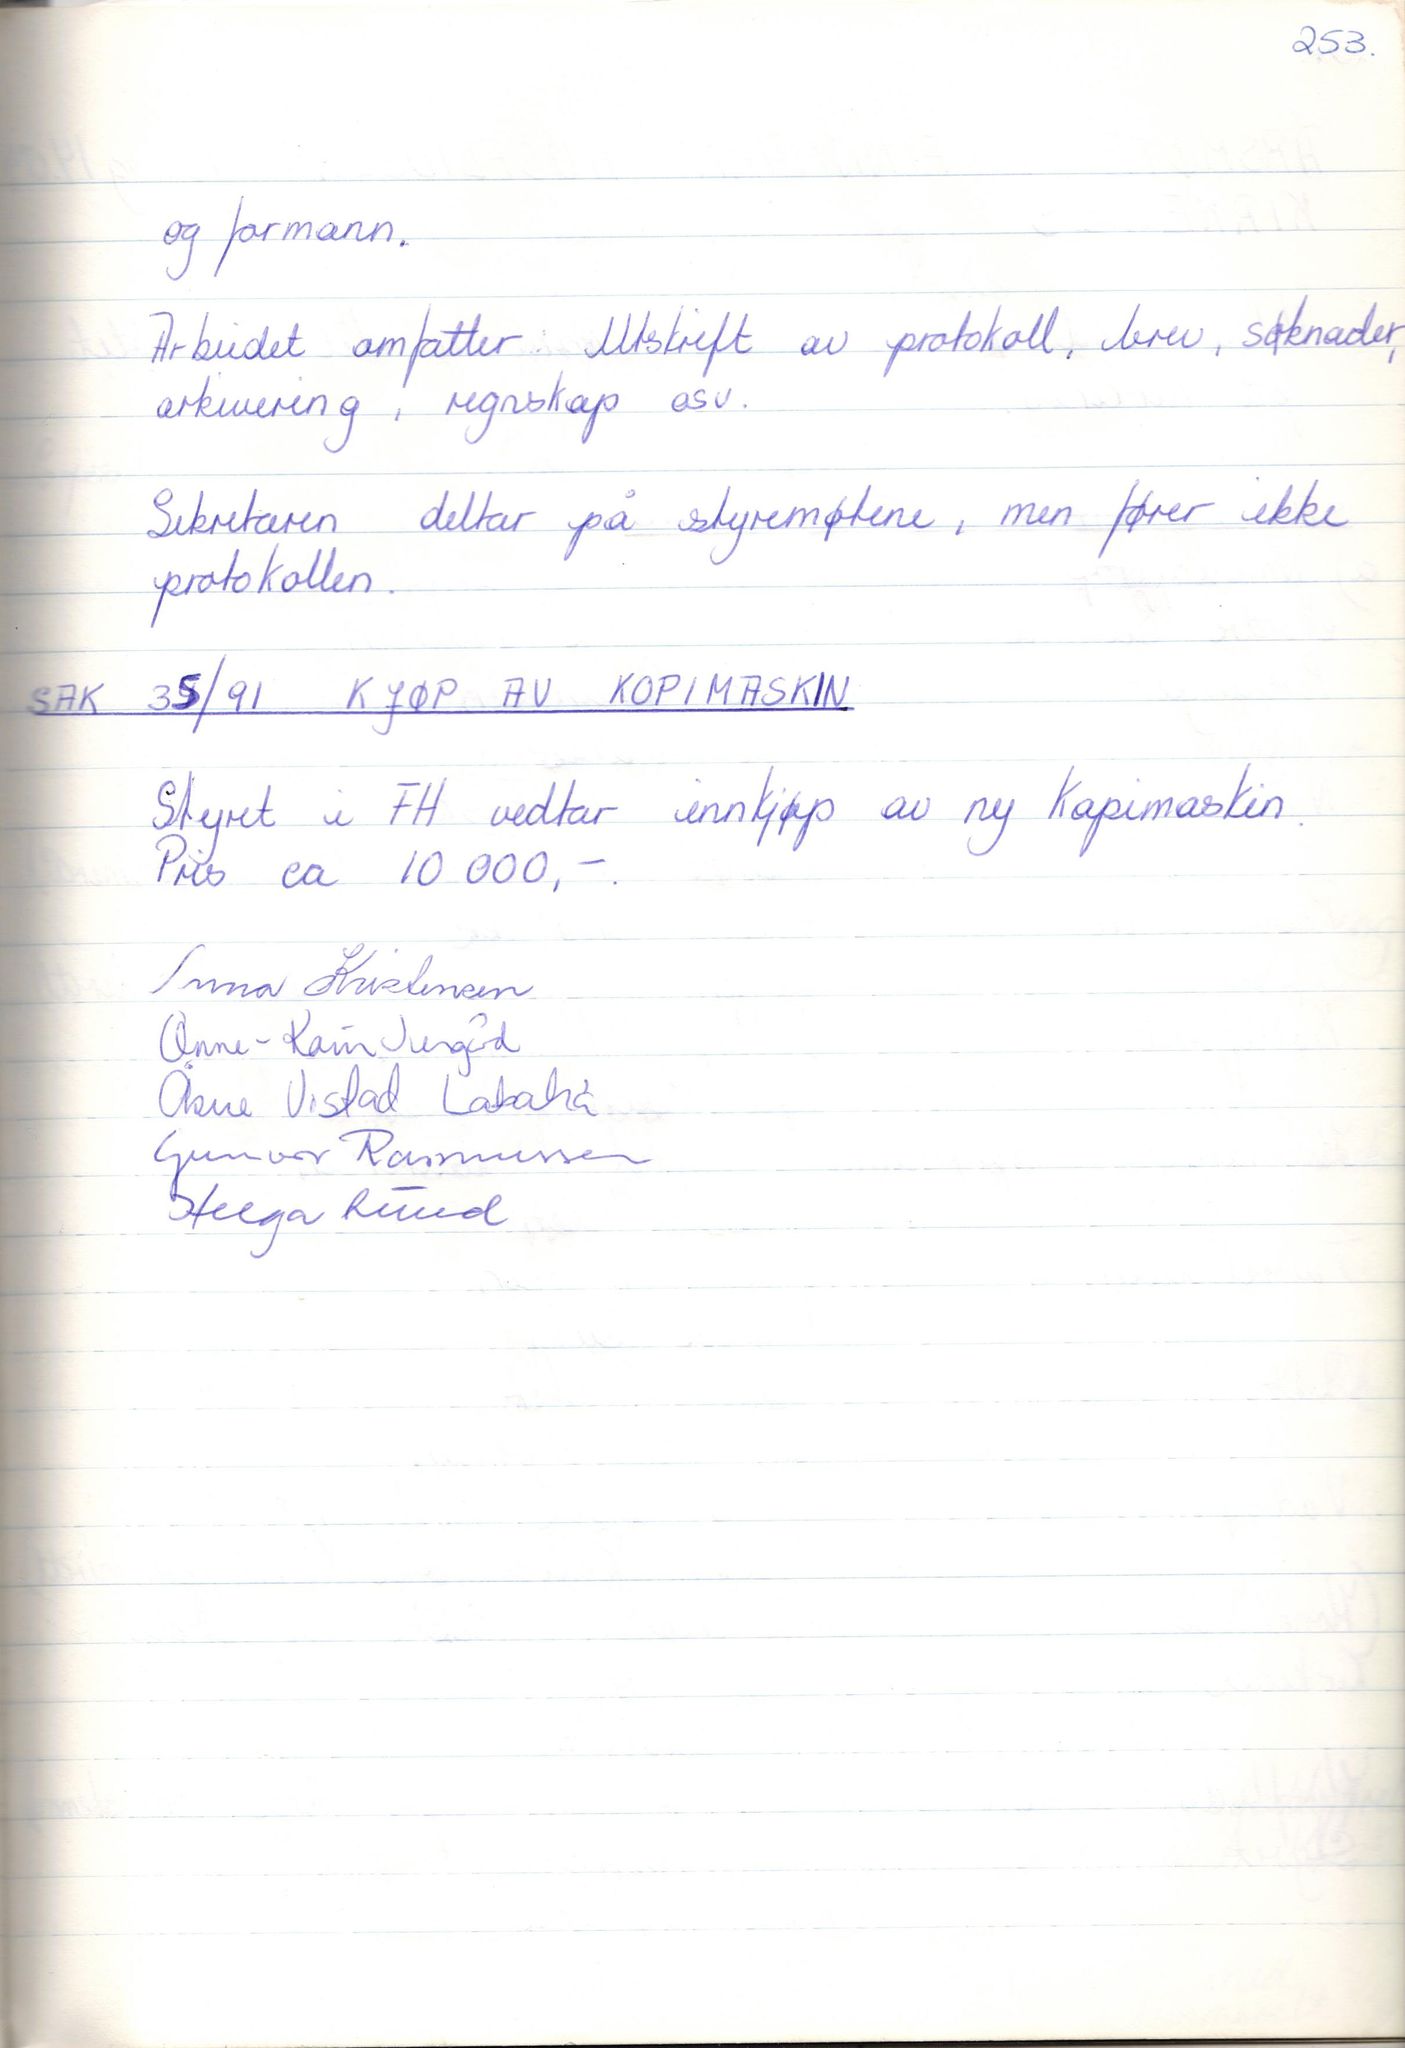 253.
og formann.
Arbeidet omfatter: Utskrift av protokoll, brev, søknader,
arkivering, regnskap osv.
Sekretæren deltar på styremøtene, men fører ikke
protokollen.
SAK 35/91 KJØP AV KOPIMASKIN
Styret i FH vedtar innkjøp av ny kopimaskin.
Pris ca 10 000,-.
Kristensen
Anne-Karin
Åsne Vistad
Gunvor Rasmussen
Helga